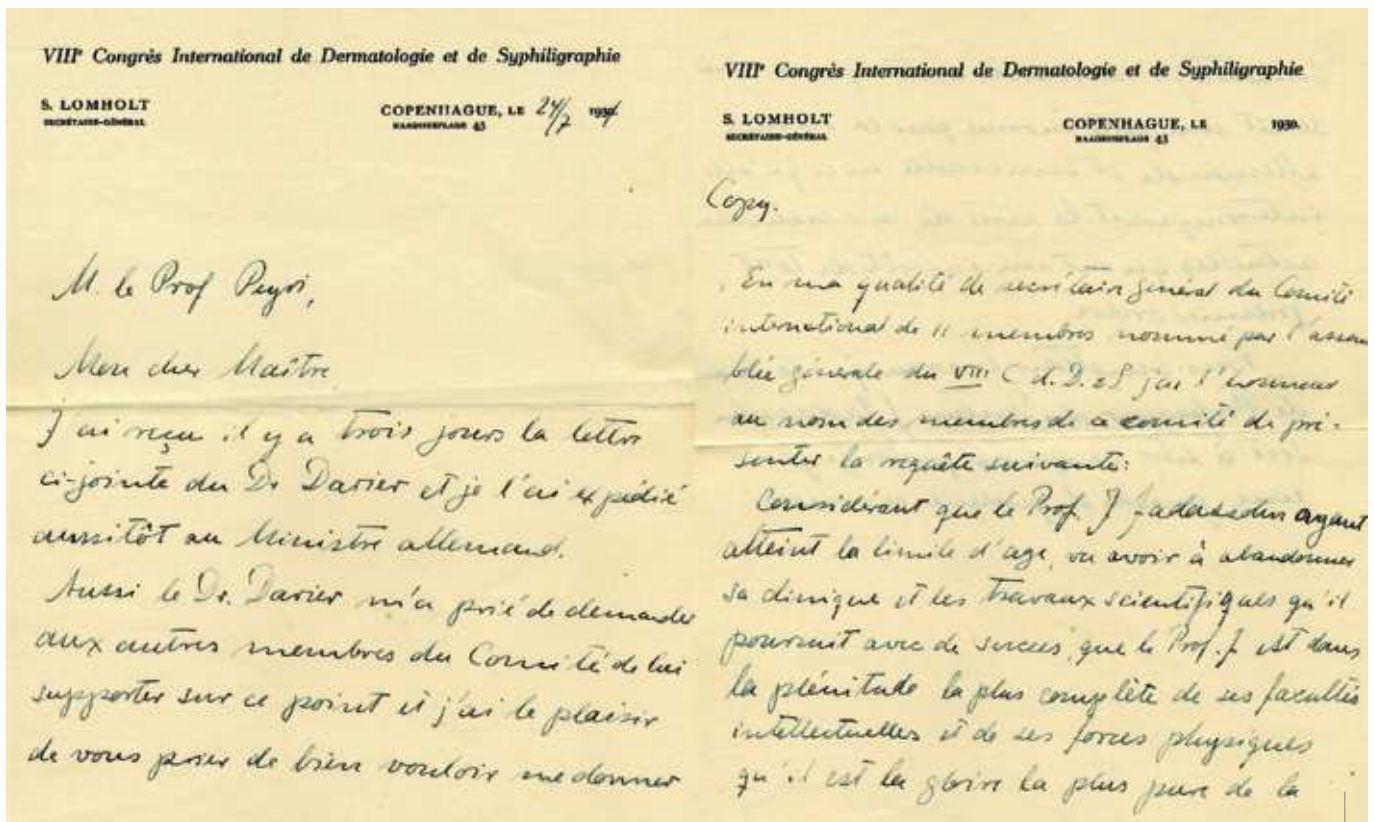 VIIIᵉ Congrès International de Dermatologie et de Syphiligraphie
S. LOMHOLT
SECRÉTAIRE-GÉNÉRAL
COPENHAGUE, LE 24/7 1931
RAADHUSPLADS 45
M. le Prof Peyri,
Mon cher Maître,
J'ai reçu il y a trois jours la lettre
ci-jointe du Dr Darier et je l'ai expédié
aussitôt au Ministre allemand.
Aussi le Dr. Darier m'a prié de demander
aux autres membres du Comité de lui
supporter sur ce point et j'ai le plaisir
de vous prier de bien vouloir me donner
VIIIᵉ Congrès International de Dermatologie et de Syphiligraphie
S. LOMHOLT
SECRÉTAIRE-GÉNÉRAL
COPENHAGUE, LE 1930.
RAADHUSPLADS 45
Copy.
En ma qualité de secrétaire général du Comité
international de 11 membres nommé par l'assem
blée générale du VIII C d. D. et S j'ai l'honneur
au nom des membres de ce comité de pré-
senter la requête suivante:
Considérant que le Prof. J Jadassohn ayant
atteint la limite d'age, va avoir à abandonner
sa clinique et les travaux scientifiques qu'il
poursuit avec de succès, que le Prof. J est dans
la plénitude la plus complète de ses facultés
intellectuelles et de ses forces physiques
qu'il est la gloire la plus pure de la